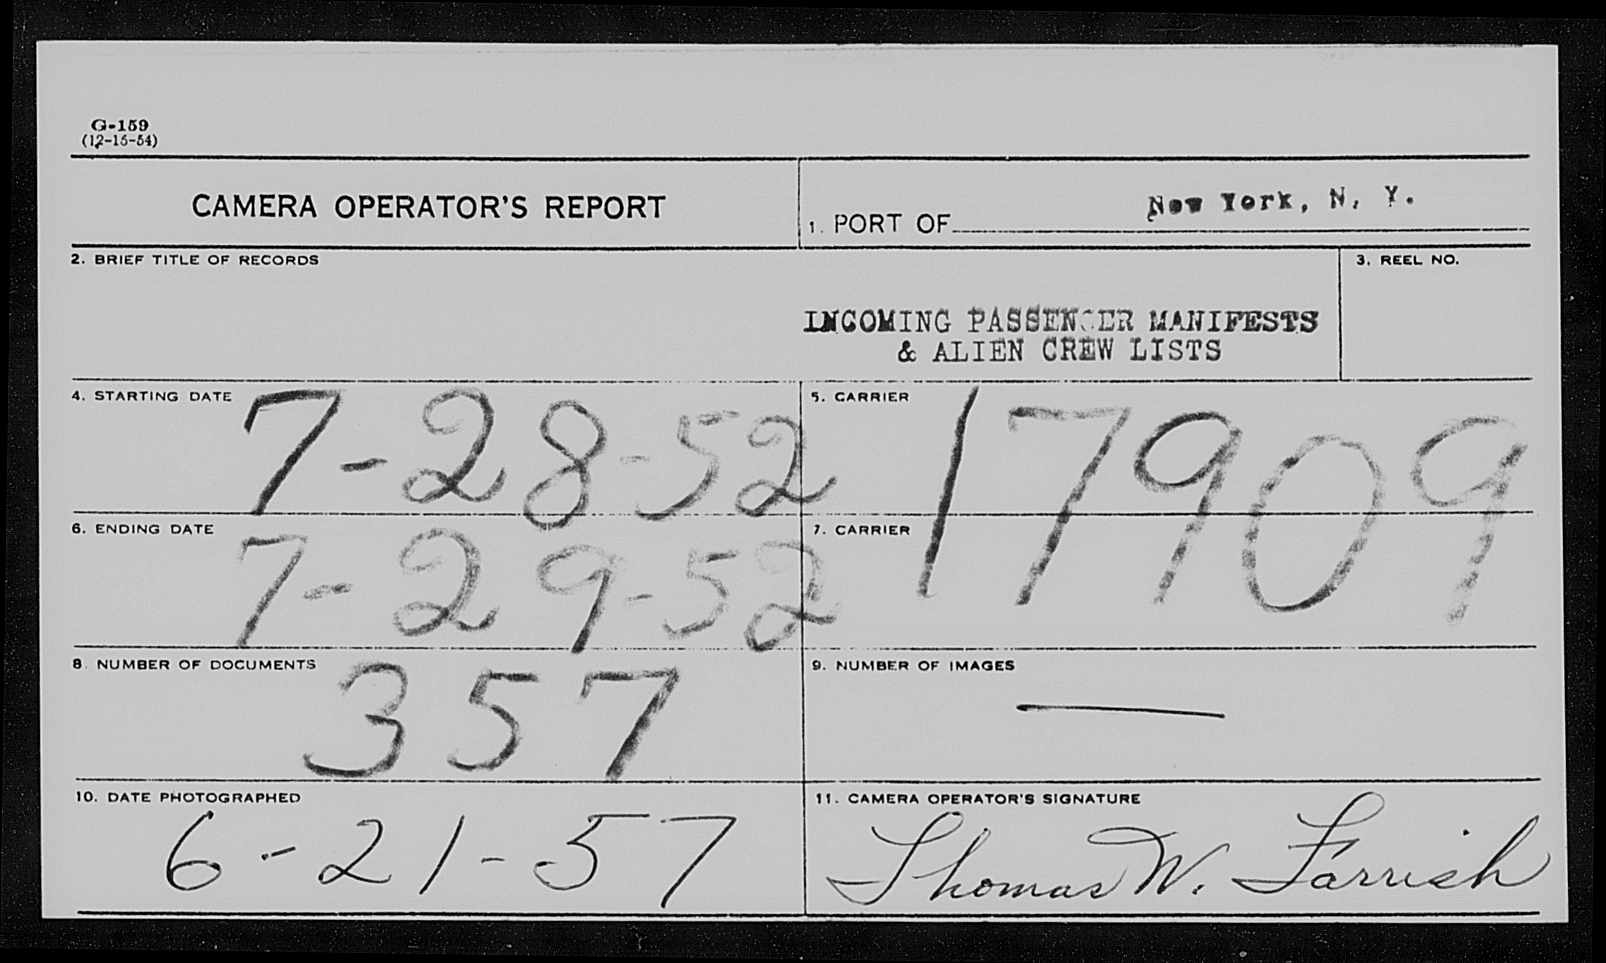 G-159
(12-15-54)
CAMERA OPERATOR'S REPORT
1. PORT OF New York, N. Y.
2. BRIEF TITLE OF RECORDS
INCOMING PASSENGER MANIFESTS
& ALIEN CREW LISTS
3. REEL NO.
4. STARTING DATE 7-28-52
5. CARRIER
17909
6. ENDING DATE 7-29-52
7. CARRIER
8. NUMBER OF DOCUMENTS 357
9. NUMBER OF IMAGES —
10. DATE PHOTOGRAPHED
6-21-57
11. CAMERA OPERATOR'S SIGNATURE
Thomas W. Farrish